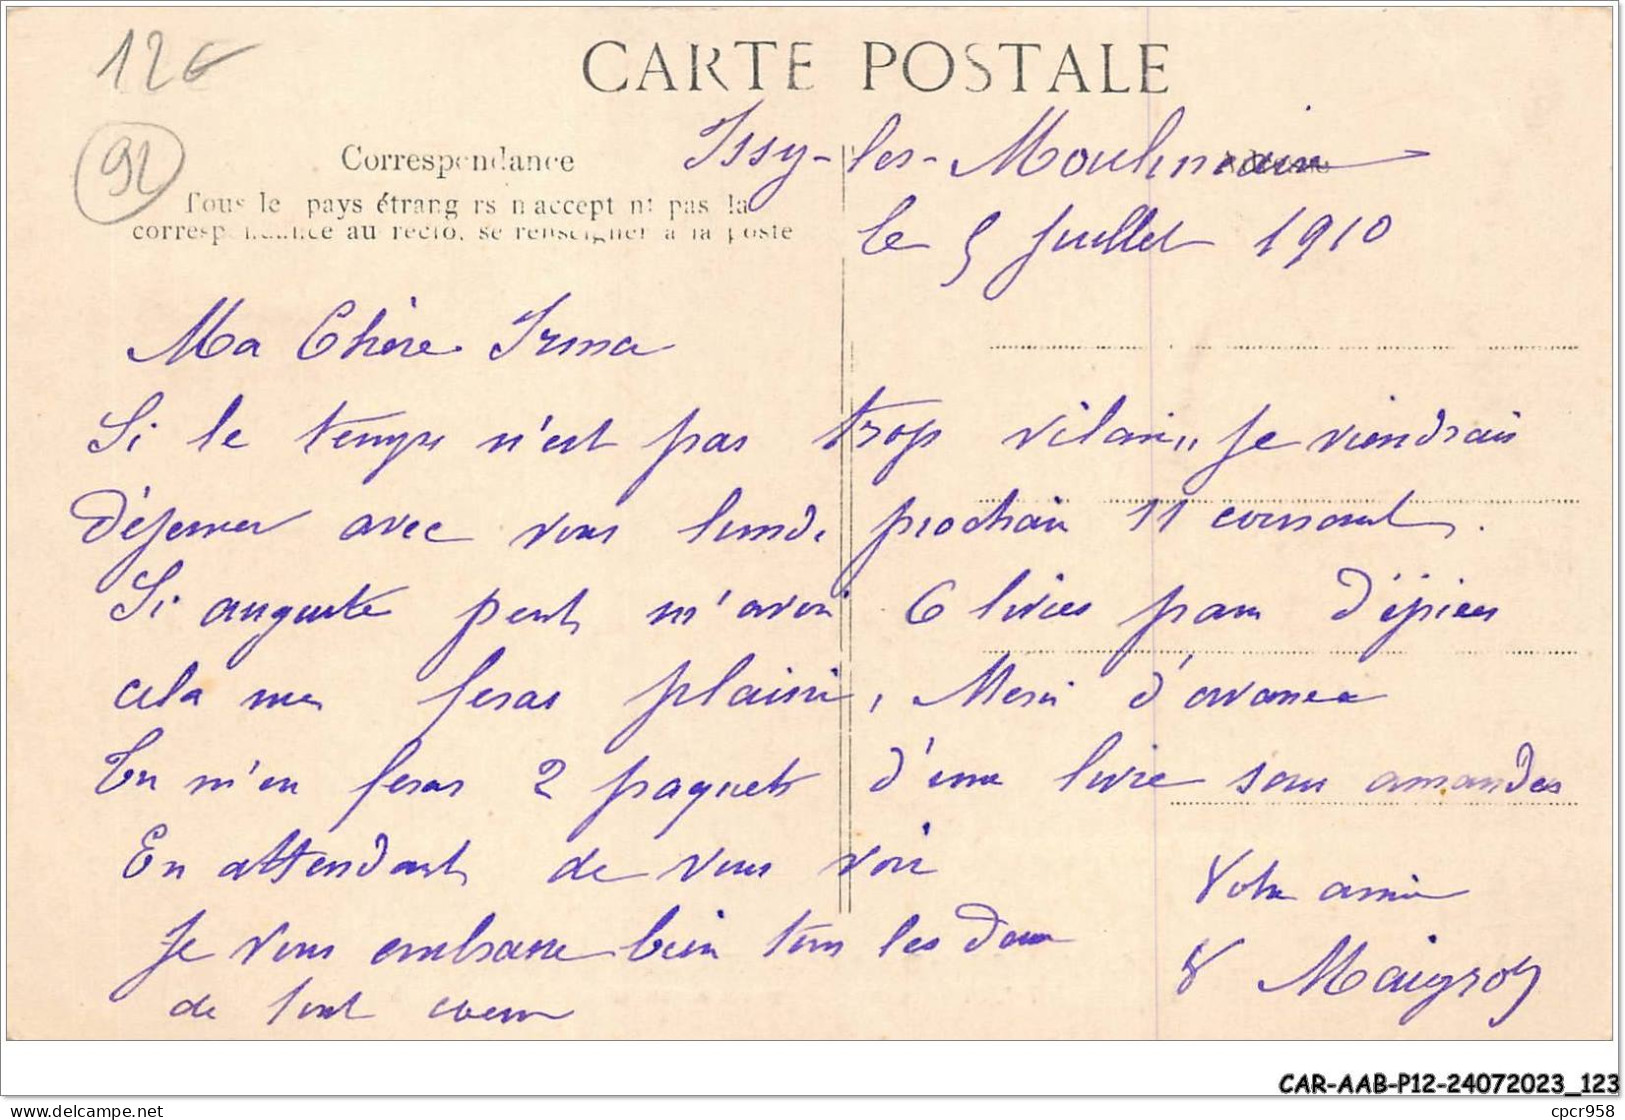 12€
CARTE POSTALE
92
Correspondance
Issy-les-Moulineaux
Tous les pays étrangers n'acceptent pas la
correspondance au recto, se renseigner à la poste
le 5 Juillet 1910
Ma Chère Irma
Si le temps n'est pas trop vilain, je viendrais
Déjeuner avec vous lundi prochain 11 courant.
Si auguste peut m'avoir 6 livres pain d'épices
cela me feras plaisir, Merci d'avance
Tu m'en feras 2 paquets d'une livre sans amandes
En attendant de vous voir
Votre amie
Je vous embrasse bien tous les deux
V Maigrot
de tout coeur
CAR-AAB-P12-24072023_123
www.delcampe.net
cpcr958